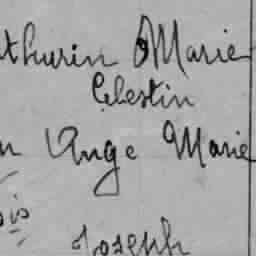 thurin Marie
Celestin
n Ange Marie
ois
Joseph